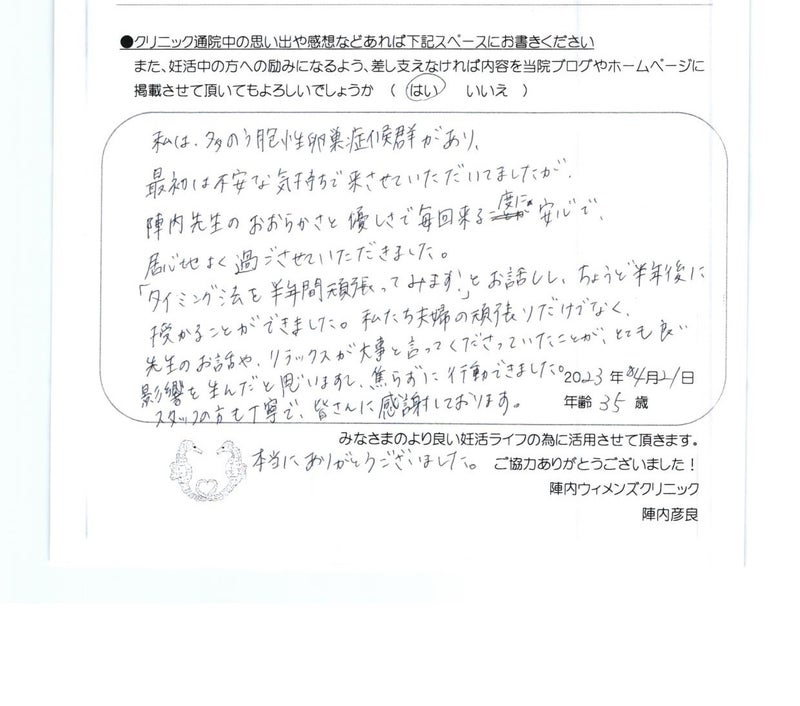 ●クリニック通院中の思い出や感想などあれば下記スペースにお書きください
また、妊活中の方への励みになるよう、差し支えなければ内容を当院ブログやホームページに
掲載させて頂いてもよろしいでしょうか （ はい いいえ ）
私は、多のう胞性卵巣症候群があり、
最初は不安な気持ちで来させていただいてましたが、
陣内先生のおおらかさと優しさで毎回来る度に安心で、
居心地よく過ごさせていただきました。
「タイミング法を半年間頑張ってみます!」とお話しし、ちょうど半年後に
授かることができました。私たち夫婦の頑張りだけでなく、
先生のお話や、リラックスが大事と言ってくださっていたことが、とても良い
影響を生んだと思いますし、焦らずに行動できました。
スタッフの方も丁寧で、皆さんに感謝しております。
2023年04月21日
年齢 35 歳
みなさまのより良い妊活ライフの為に活用させて頂きます。
本当にありがとうございました。
ご協力ありがとうございました！
陣内ウィメンズクリニック
陣内彦良